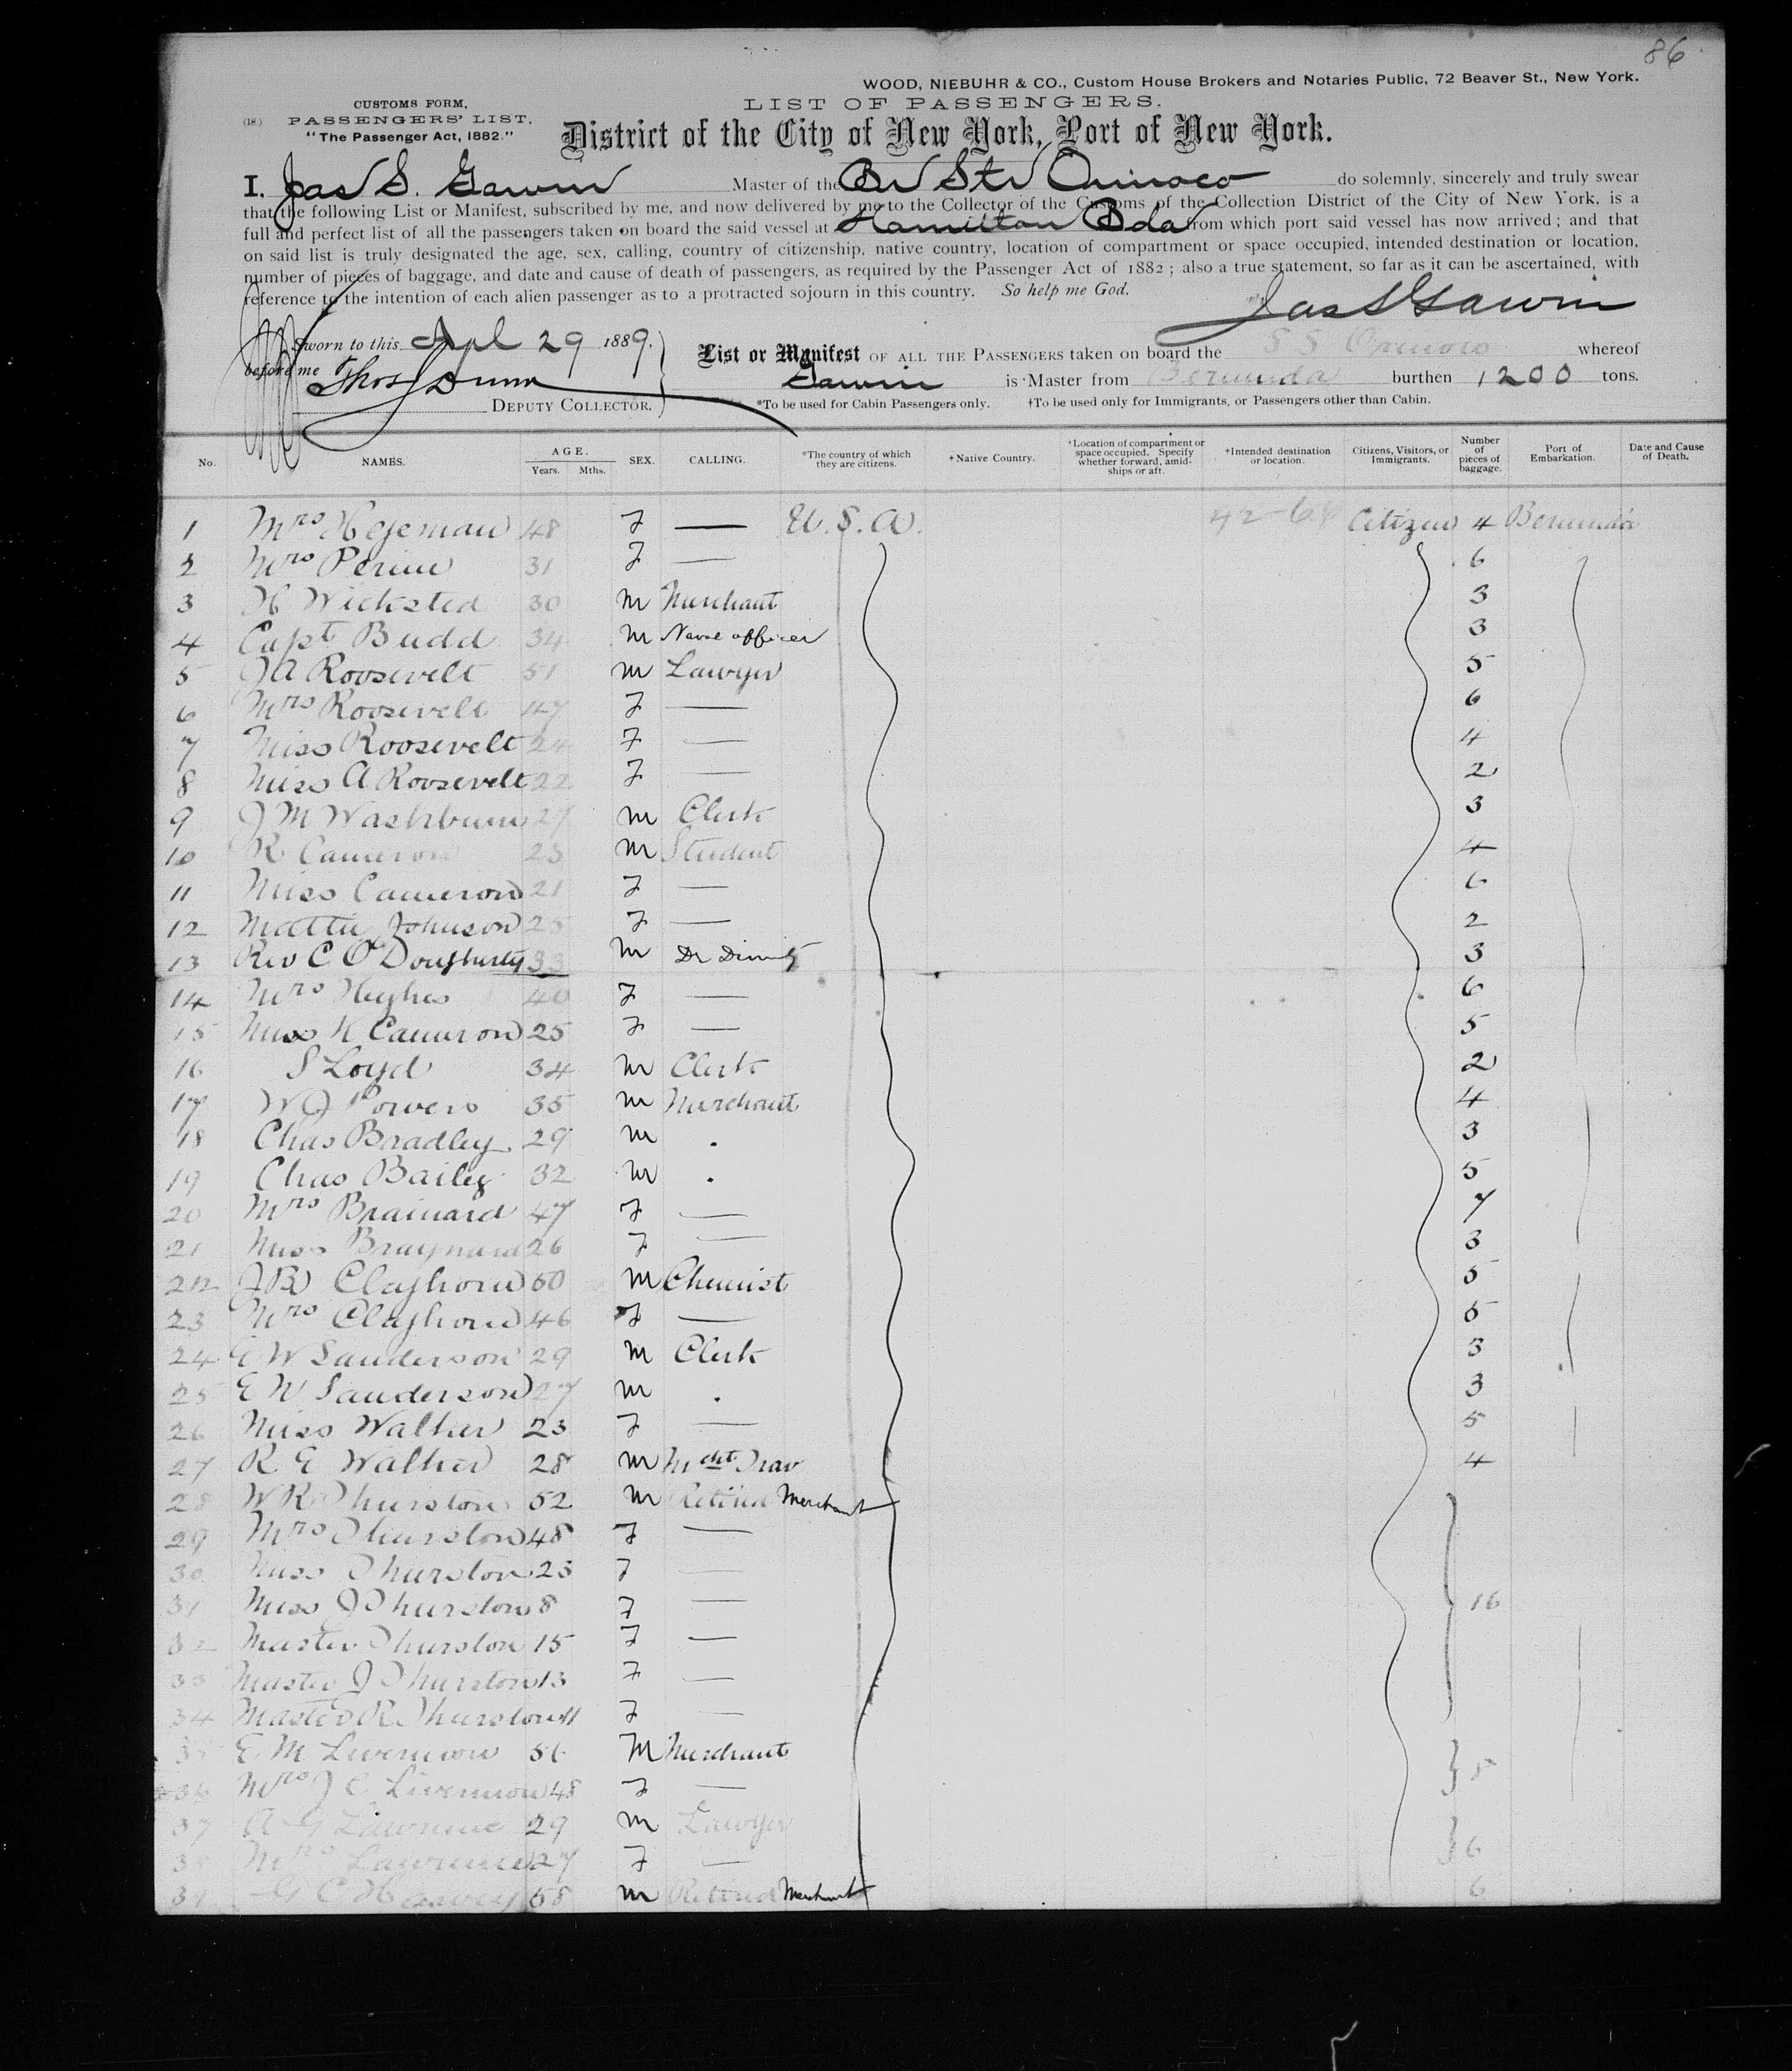 86
WOOD, NIEBUHR & CO., Custom House Brokers and Notaries Public, 72 Beaver St., New York.
CUSTOMS FORM,
LIST OF PASSENGERS.
(18.) PASSENGERS' LIST.
"The Passenger Act, 1882."
District of the City of New York, Port of New York.
I, Jas S. Garvin Master of the Br Str Orinoco do solemnly, sincerely and truly swear
that the following List or Manifest, subscribed by me, and now delivered by me to the Collector of the Customs of the Collection District of the City of New York, is a
full and perfect list of all the passengers taken on board the said vessel at Hamilton Bda from which port said vessel has now arrived; and that
on said list is truly designated the age, sex, calling, country of citizenship, native country, location of compartment or space occupied, intended destination or location,
number of pieces of baggage, and date and cause of death of passengers, as required by the Passenger Act of 1882; also a true statement, so far as it can be ascertained, with
reference to the intention of each alien passenger as to a protracted sojourn in this country. So help me God.
Jas S Garvin
Sworn to this Apl 29 1889.
before me Thos Dunn
DEPUTY COLLECTOR.
List or Manifest OF ALL THE PASSENGERS taken on board the S S Orinoco whereof
Garvin is Master from Bermuda burthen 1200 tons.
*To be used for Cabin Passengers only. †To be used only for Immigrants, or Passengers other than Cabin.
No. NAMES. AGE. Years. Mths. SEX. CALLING. *The country of which they are citizens. †Native Country. †Location of compartment or space occupied. Specify whether forward, amidships or aft. †Intended destination or location. Citizens, Visitors, or Immigrants. Number of pieces of baggage. Port of Embarkation. Date and Cause of Death.
1 Mrs Hegeman 48 F — U.S.A. Citizen 4 Bermuda
2 Mrs Perine 31 F — 6
3 H Wicksted 30 M Merchant 3
4 Capt Budd 34 M Naval officer 3
5 J A Roosevelt 51 M Lawyer 5
6 Mrs Roosevelt 47 F — 6
7 Miss Roosevelt 24 F — 4
8 Miss A Roosevelt 22 F — 2
9 J M Washburn 27 M Clerk 3
10 R Cameron 23 M Student 4
11 Miss Cameron 21 F — 6
12 Mattie Johnson 25 F — 2
13 Rev C O'Dougherty 33 M Dr Divinity 3
14 Mrs Hughes 40 F — 6
15 Miss H Cameron 25 F — 5
16 S Loyd 34 M Clerk 2
17 W J Powers 35 M Merchant 4
18 Chas Bradley 29 M . 3
19 Chas Bailey 32 M . 5
20 Mrs Brainard 47 F — 7
21 Miss Braynard 26 F — 3
22 J B Claghorn 50 M Chemist 5
23 Mrs Claghorn 46 F — 5
24 E W Sanderson 29 M Clerk 3
25 E W Sanderson 27 M . 3
26 Miss Walker 23 F — 5
27 R E Walker 28 M Trav 4
28 W R Thurston 52 M Retired Merchant
29 Mrs Thurston 48 F —
30 Miss Thurston 23 F —
31 Miss J Thurston 8 F — 16
32 Master Thurston 15 F —
33 Master J Thurston 13 F —
34 Master R Thurston 11 F —
35 E M Livermore 56 M Merchant
36 Mrs J C Livermore 48 F — 8
37 A G Lawrence 29 M Lawyer
38 Mrs Lawrence 27 F — 6
39 G C 58 M Retired Merchant 6